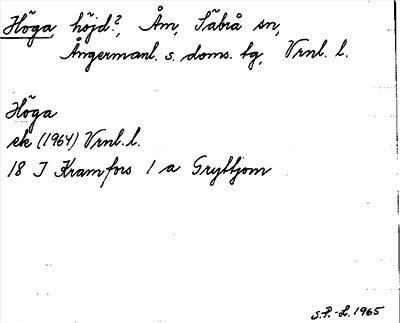 Höga, höjd?, Åm, Säbrå sn,
Ångermanl. s. doms. tg, Vrnl. l.
Höga
ek (1964) Vrnl. l.
18 I Kramfors 1 a Gryttjom
S.P.-L. 1965